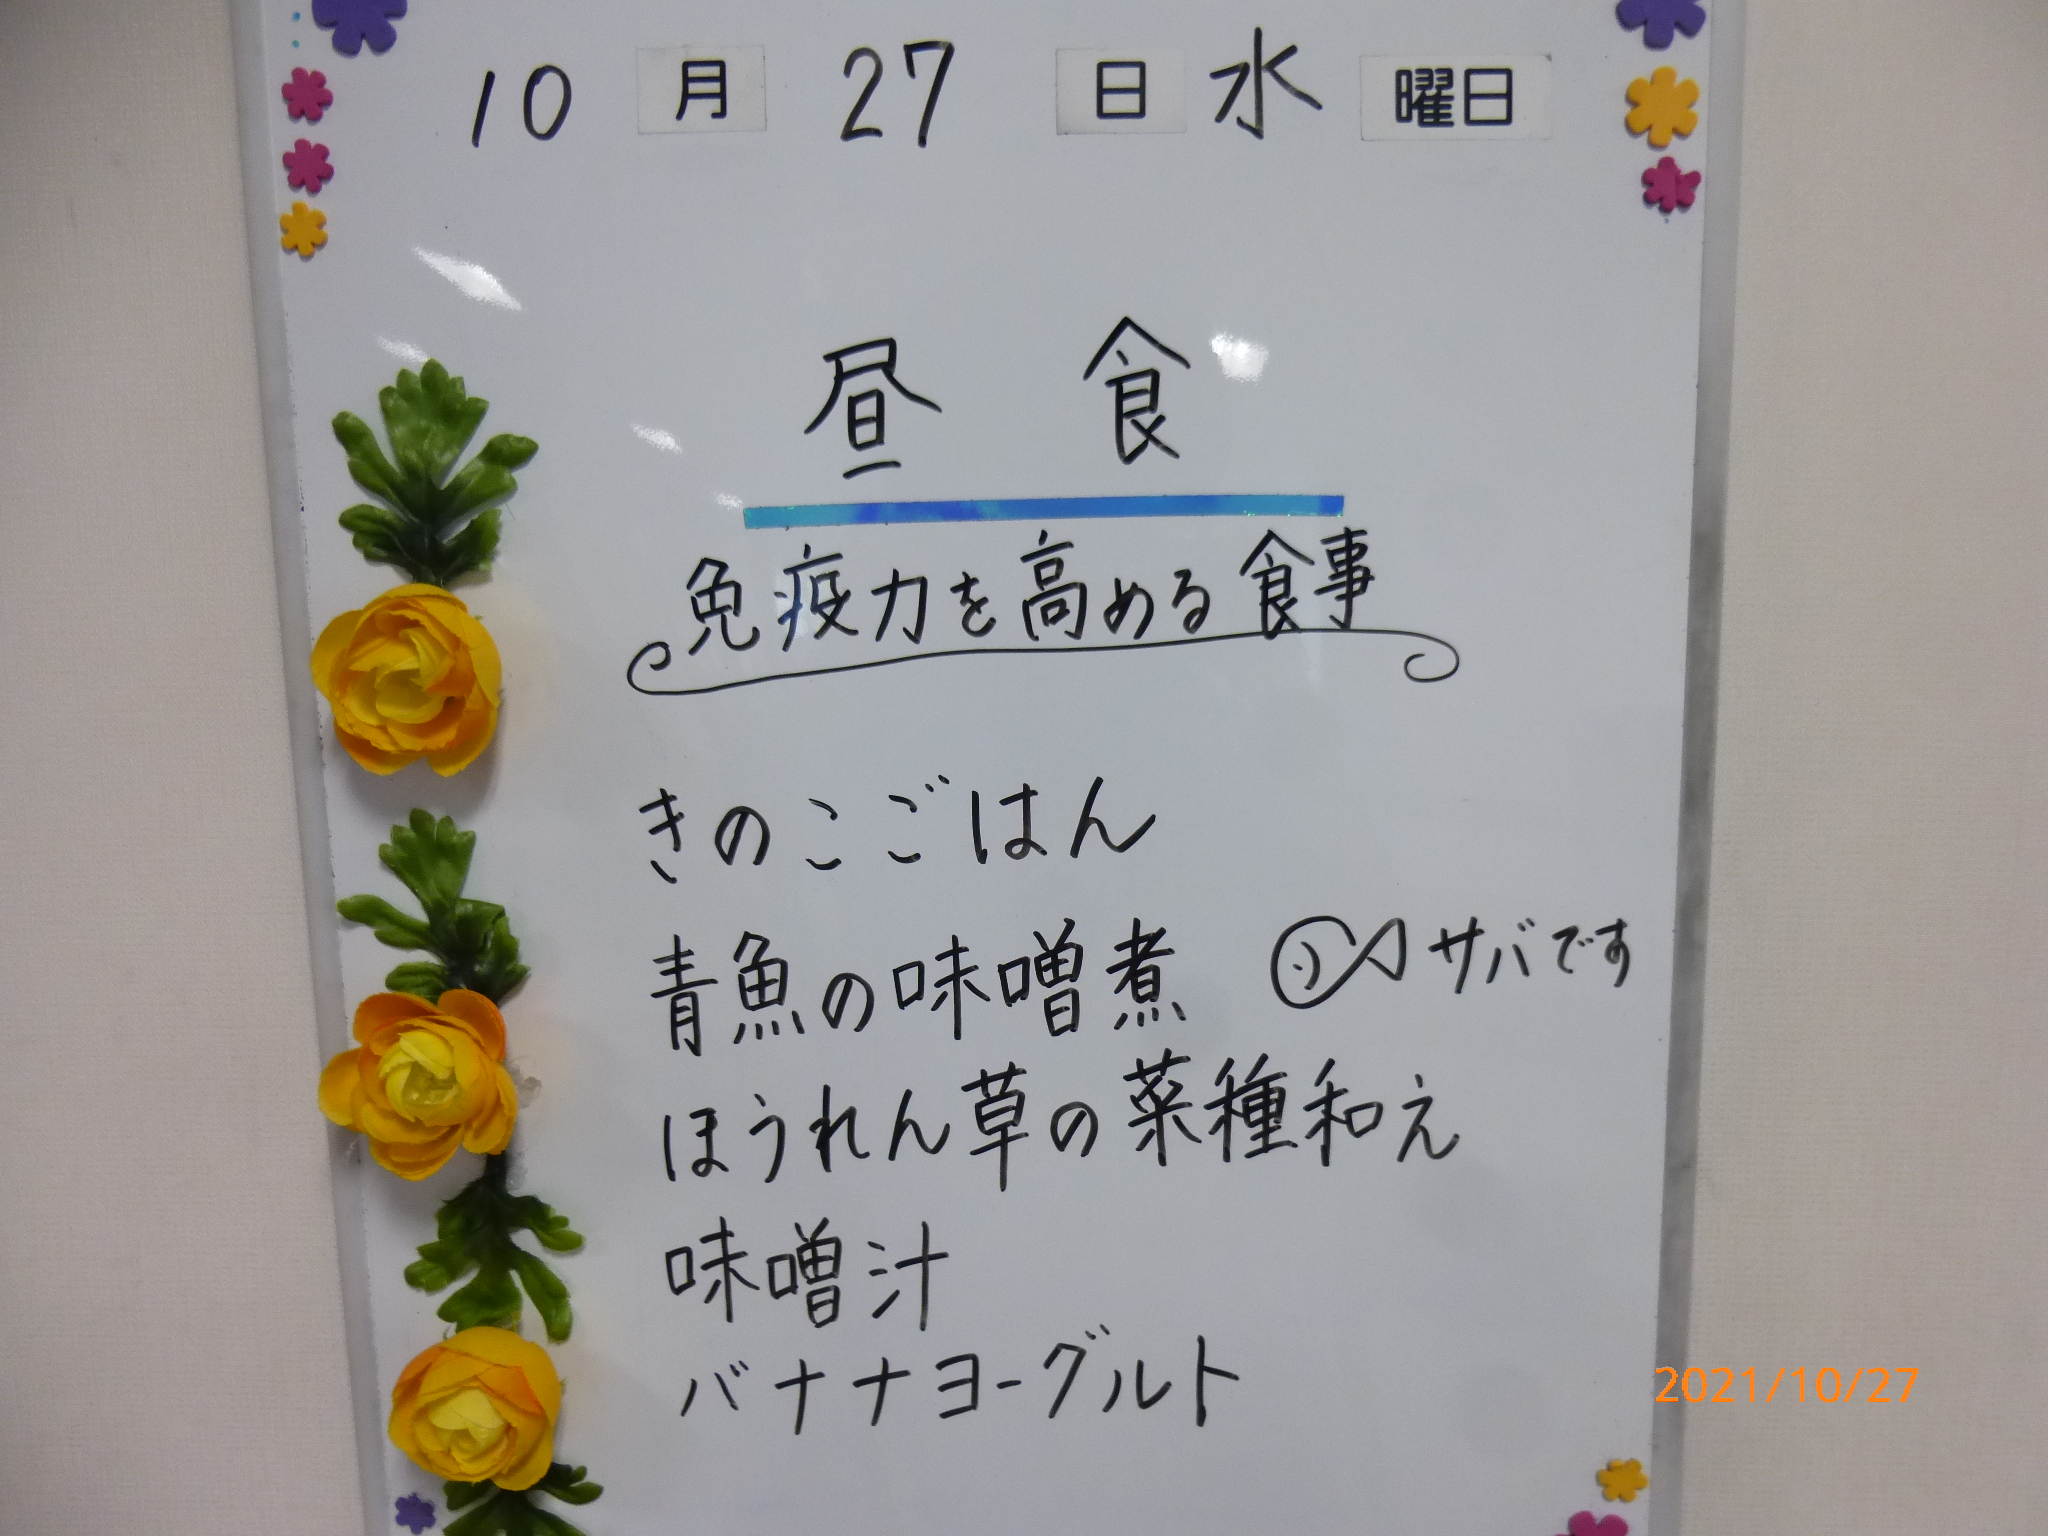 10月27日水曜日
昼食
免疫力を高める食事
きのこごはん
青魚の味噌煮 サバです
ほうれん草の菜種和え
味噌汁
バナナヨーグルト
2021/10/27